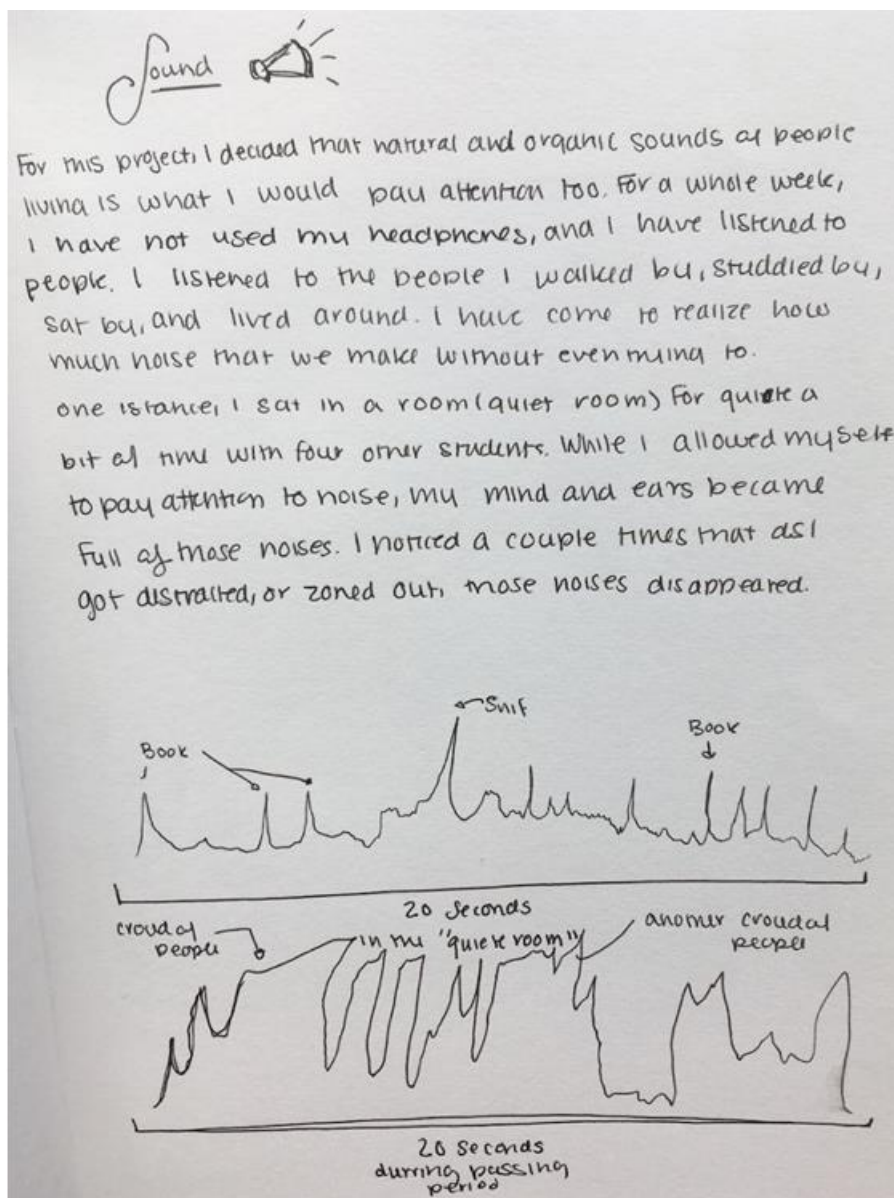 Sound
For this project, I decided that natural and organic sounds of people
living is what I would pay attention too. For a whole week,
I have not used my headphones, and I have listened to
people. I listened to the people I walked by, studdied by,
sat by, and lived around. I have come to realize how
much noise that we make without even trying to.
one istance, I sat in a room (quiet room) For quiete a
bit of time with four other students. While I allowed myself
to pay attention to noise, my mind and ears became
Full of those noises. I noticed a couple times that as I
got distracted, or zoned out, those noises disappeared.
Snif
Book
Book
20 Seconds
in the "quiete room"
croud of
people
another croud of
people
20 seconds
durring passing
period